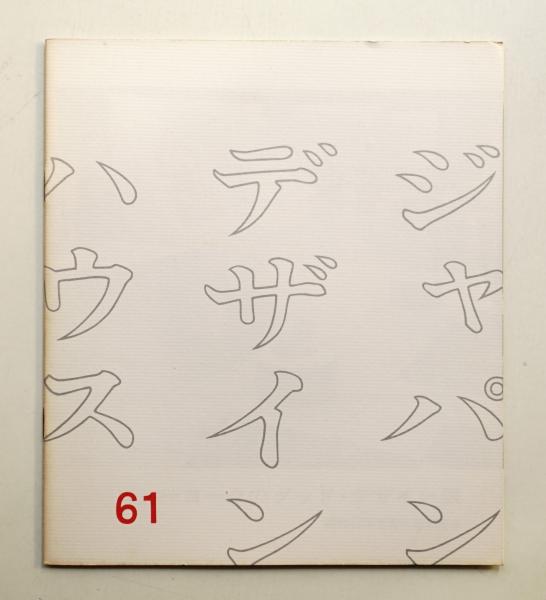 ジャパン
デザイン
ハウス
61